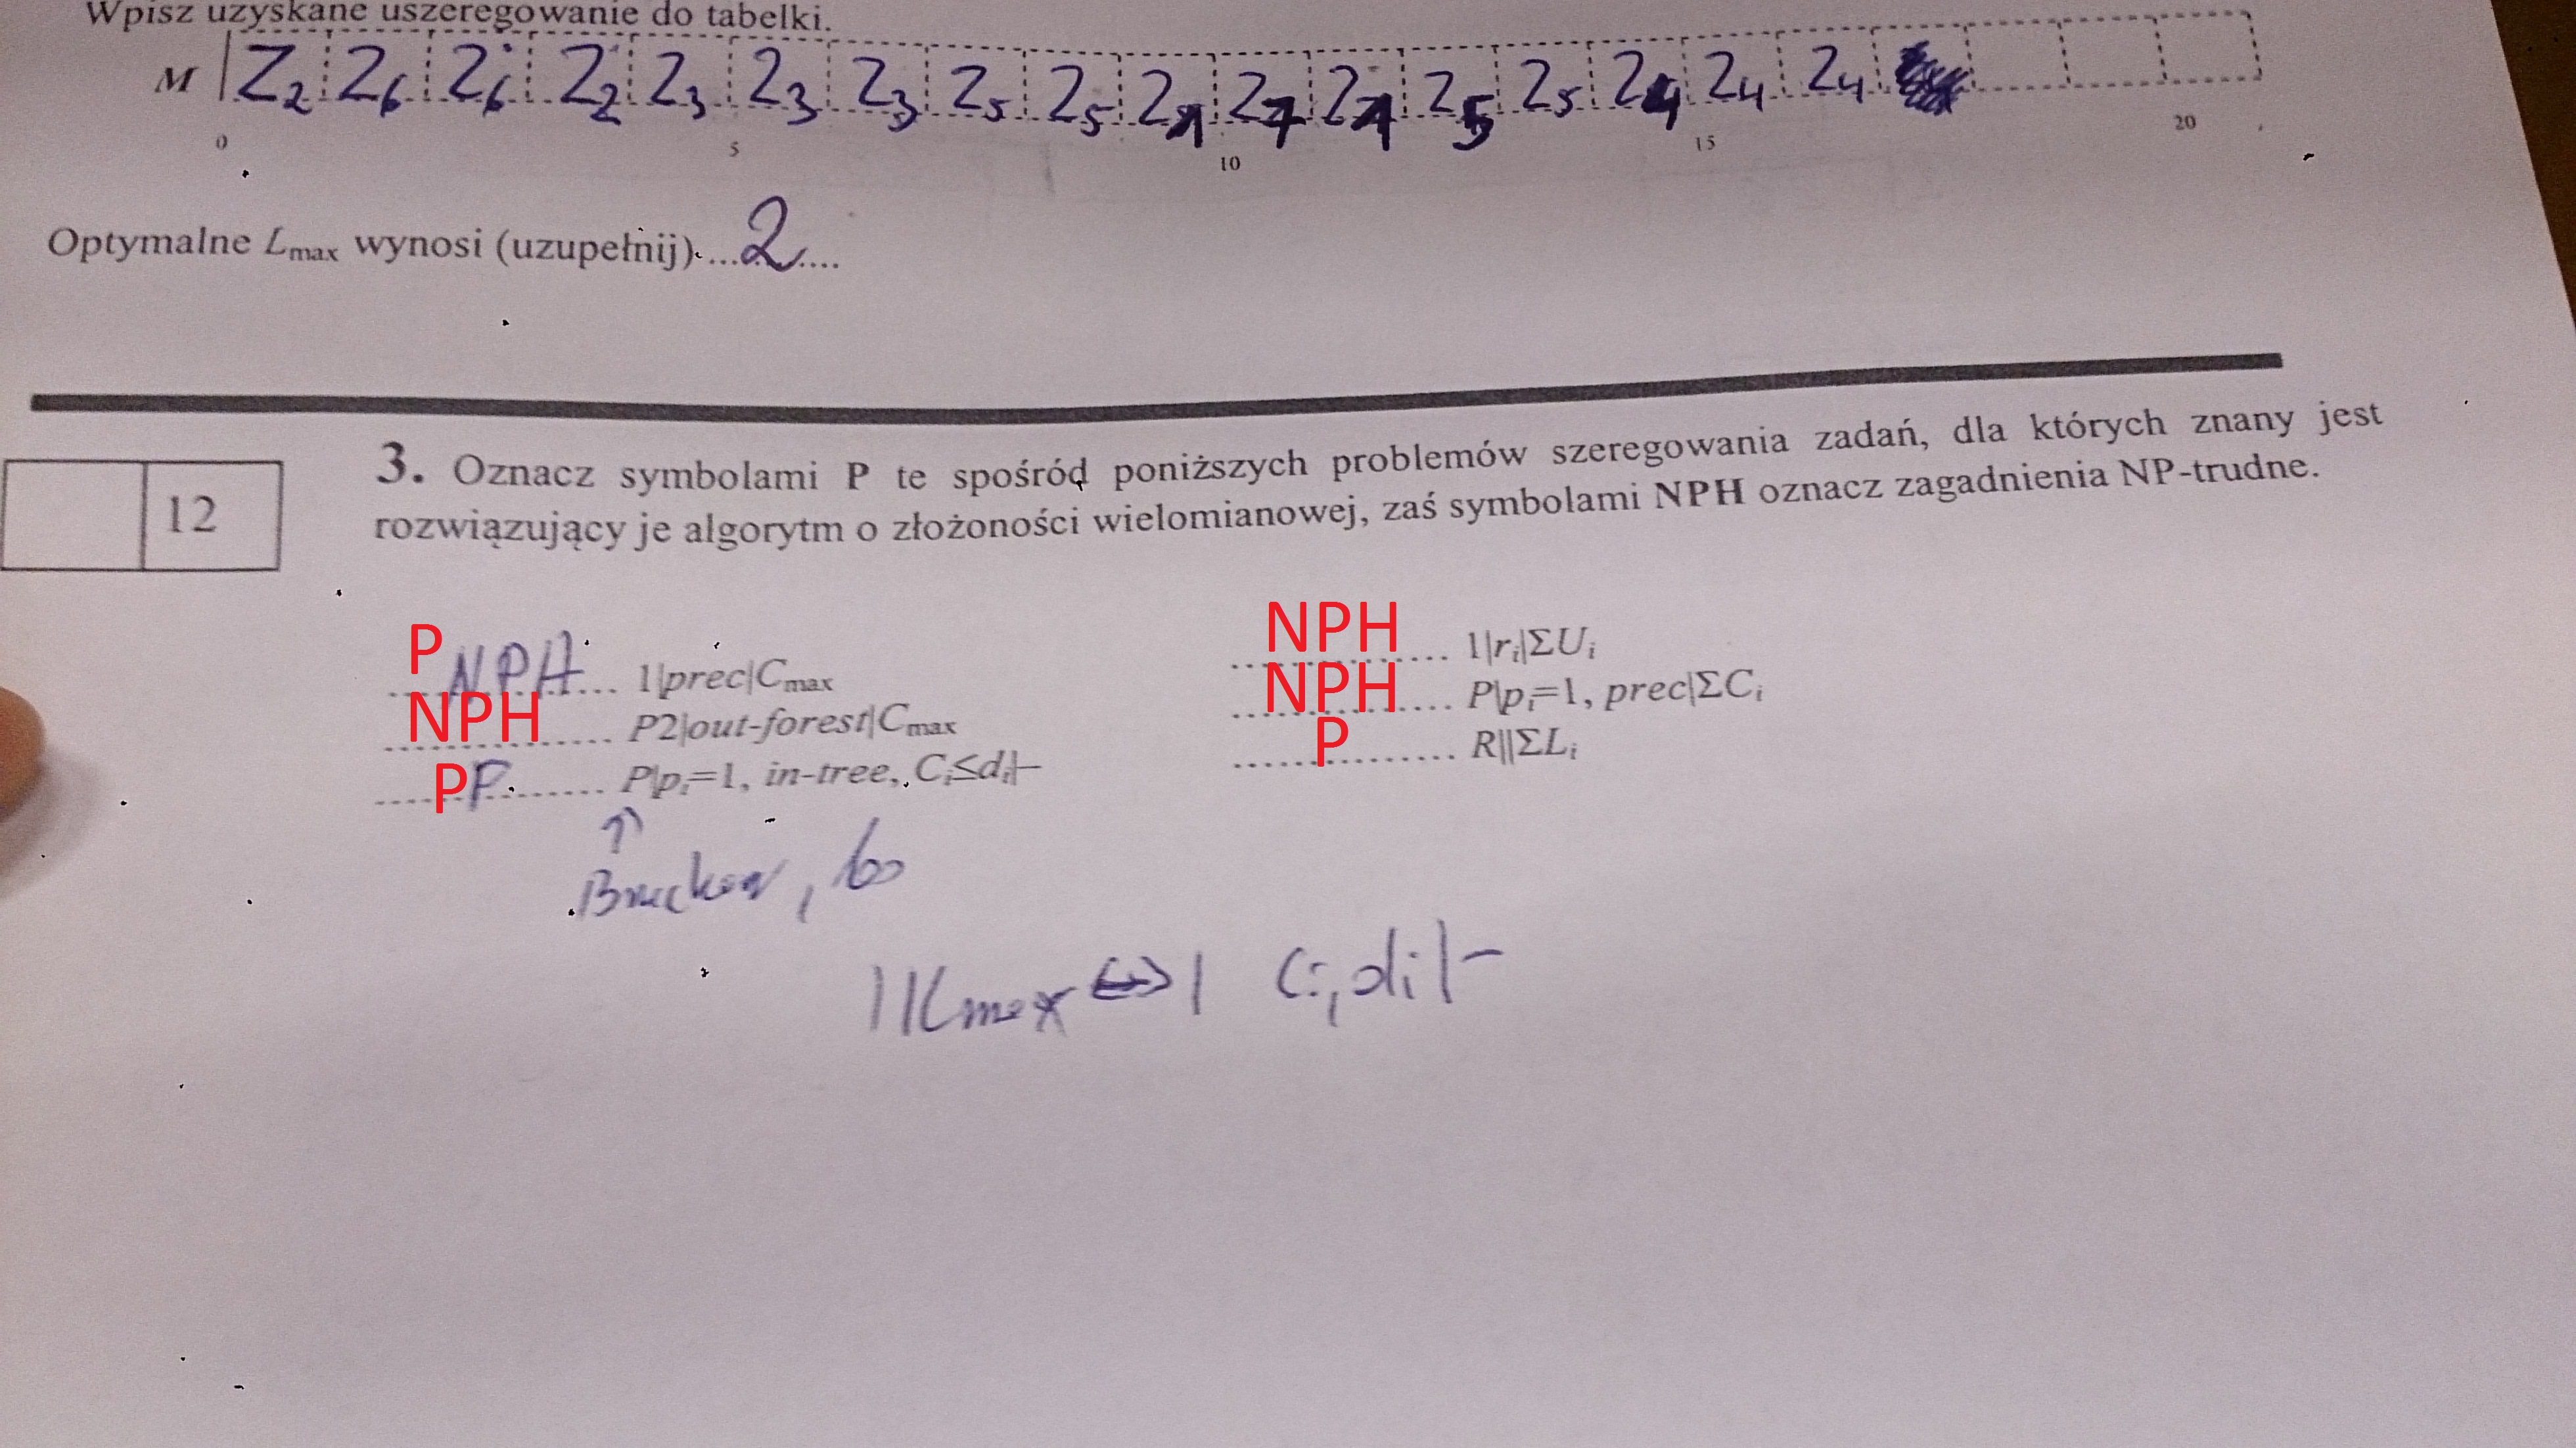 Wpisz uzyskane uszeregowanie do tabelki.
M Z2 Z6 Z6 Z2 Z3 Z3 Z3 Z5 Z5 Z1 Z7 Z1 Z5 Z5 Z4 Z4 Z4
0 5 10 15 20
Optymalne Lmax wynosi (uzupełnij)....2....
12
3. Oznacz symbolami P te spośród poniższych problemów szeregowania zadań, dla których znany jest
rozwiązujący je algorytm o złożoności wielomianowej, zaś symbolami NPH oznacz zagadnienia NP-trudne.
P NPH 1|prec|Cmax
NPH P2|out-forest|Cmax
P P P|pi=1, in-tree, Ci≤di|–
NPH 1|ri|ΣUi
NPH P|pi=1, prec|ΣCi
P R||ΣLi
↑